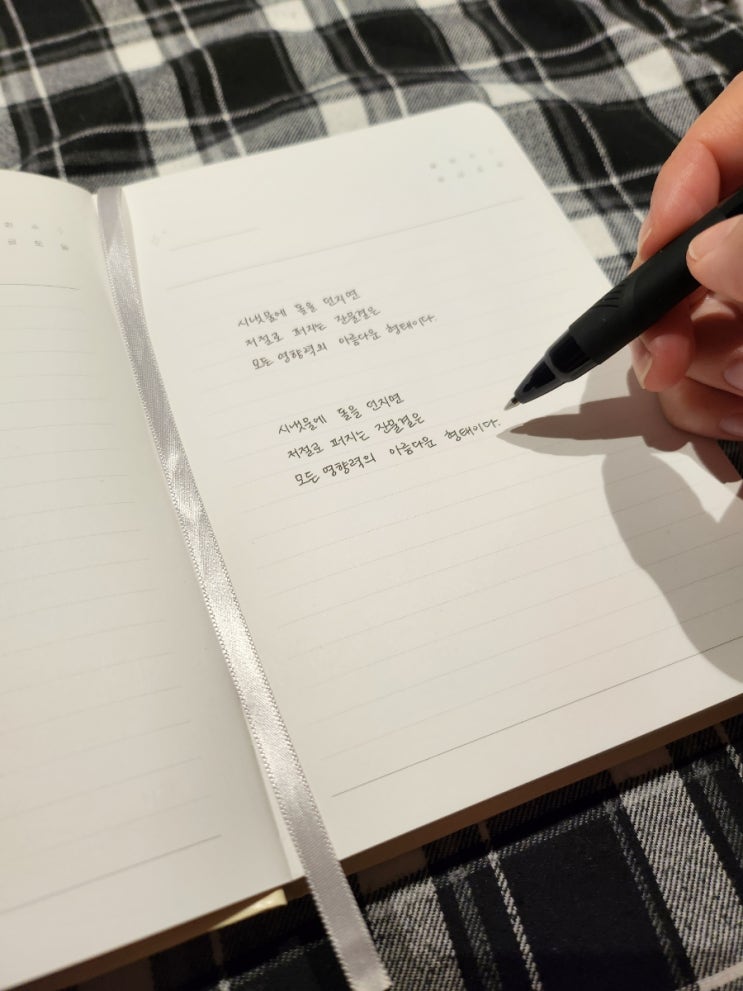 화 수
금 토 일
시냇물에 돌을 던지면
저절로 퍼지는 잔물결은
모든 영향력의 아름다운 형태이다.
시냇물에 돌을 던지면
저절로 퍼지는 잔물결은
모든 영향력의 아름다운 형태이다.